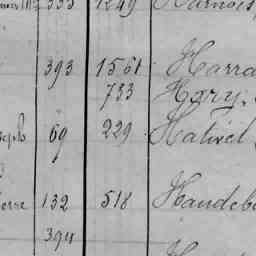 333 1249 Harnois
393 1561 Harra
733 Hary,
69 229 Hativel
erre 132 518 Haudeb
394